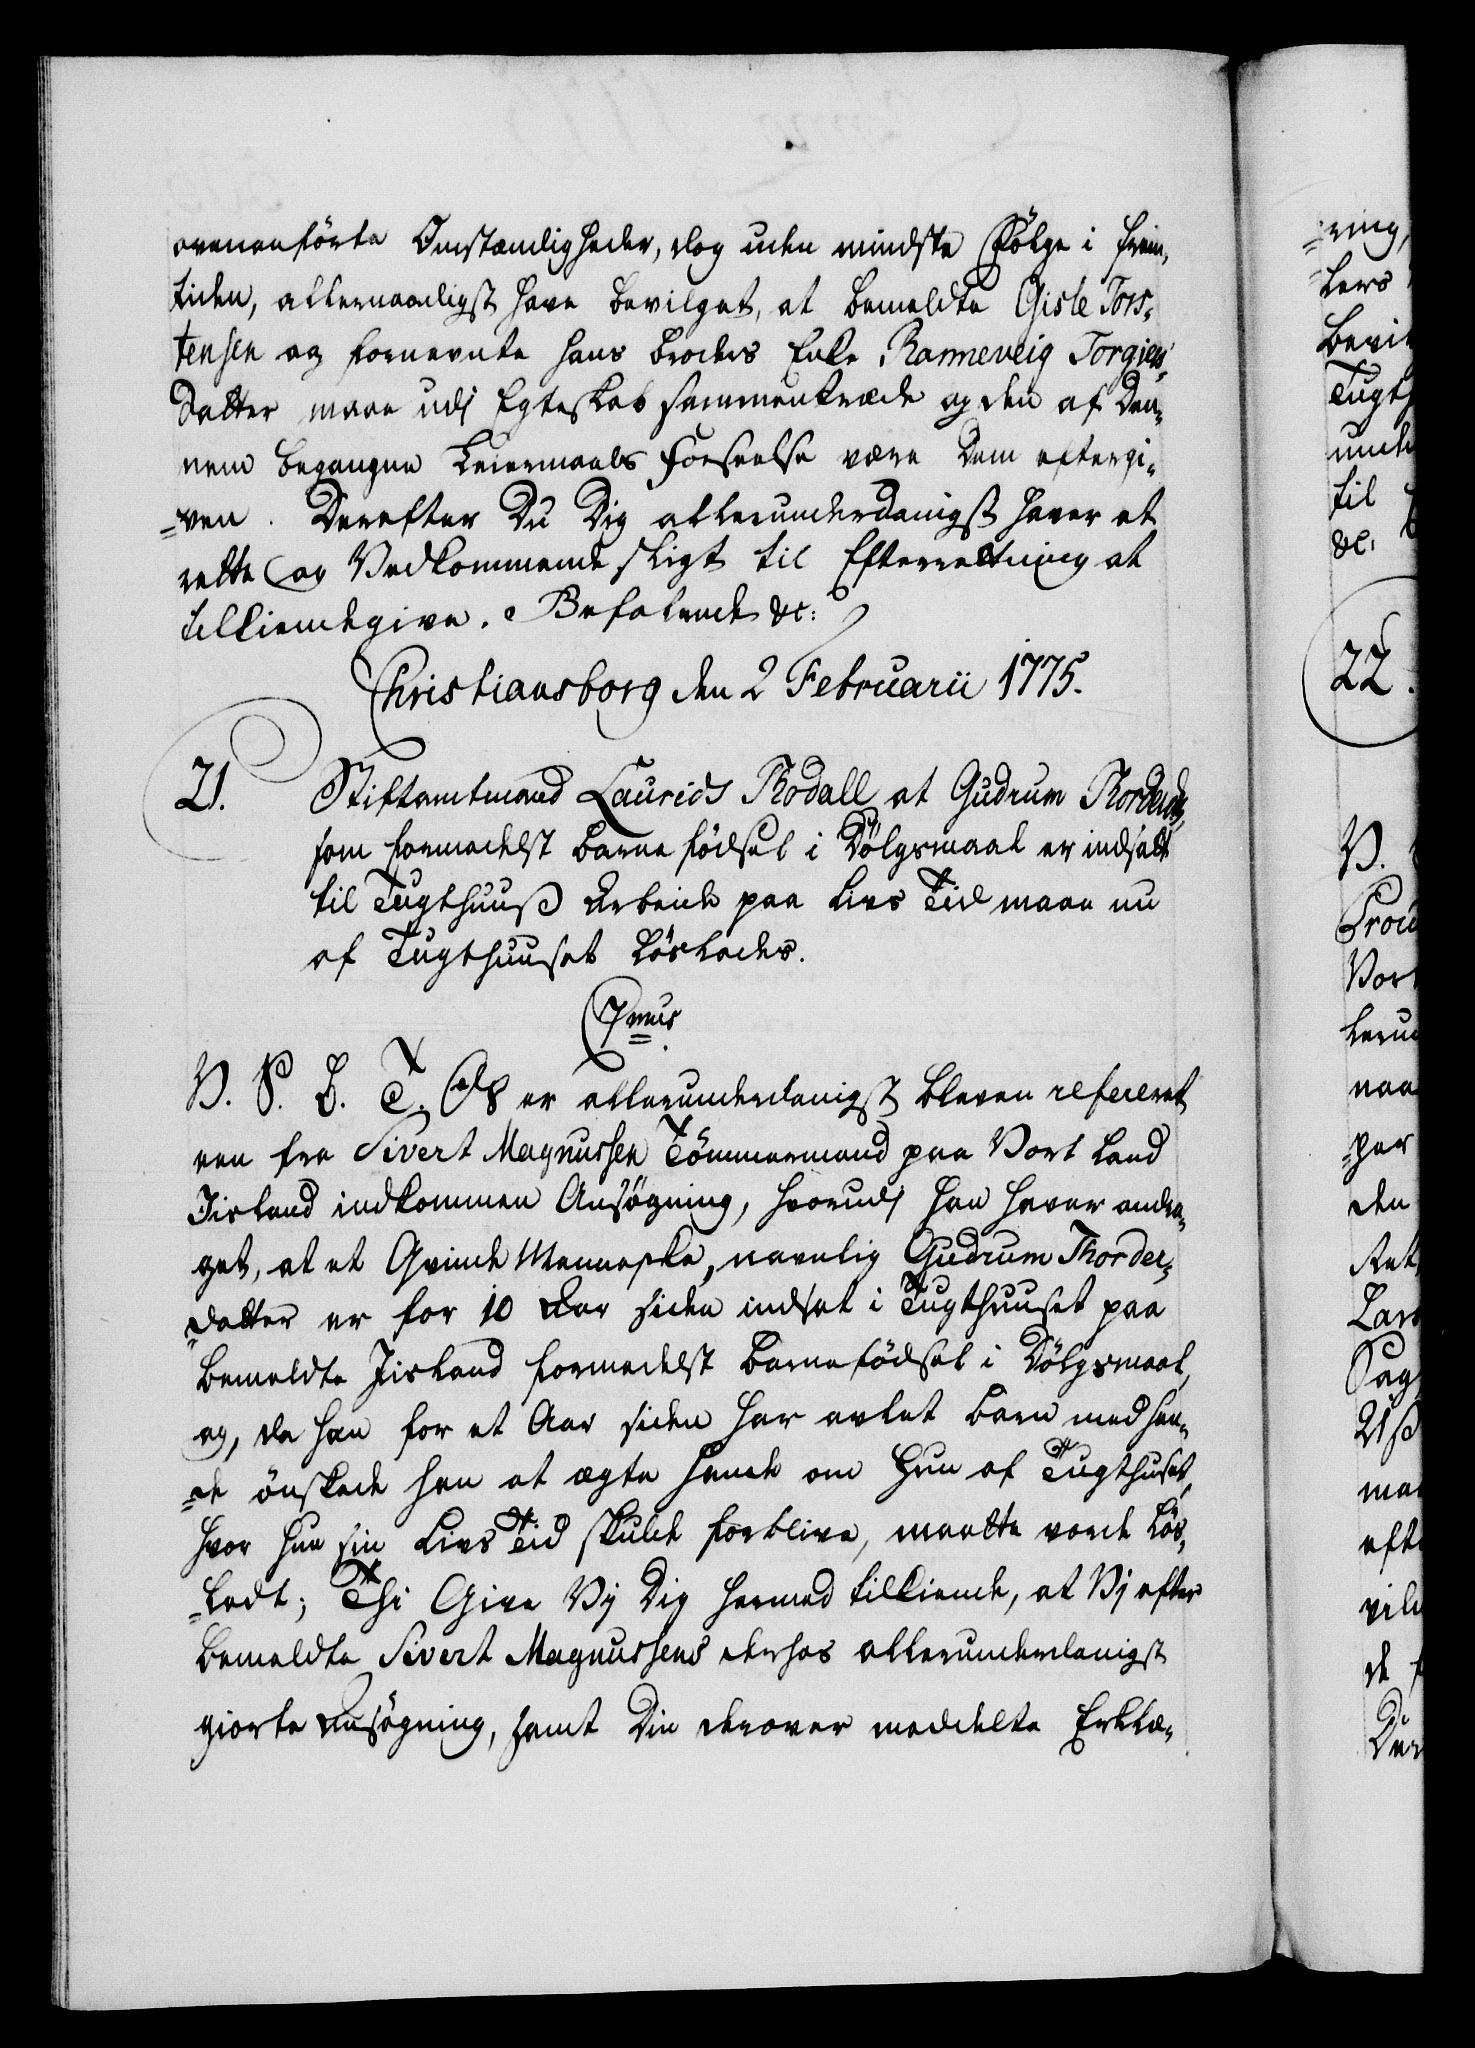 ovenanförte Omstændigheder, dog uden mindste Fölge i frem-
tiden, allernaadigst have bevilget, at bemeldte Gisle Tors-
tensen og fornevnte hans broders Enke Ranneveig Torgiers-
Datter maae udj Egteskab sammentræde og den af Den-
nem begangne Leiermaals Forseelse være Dem eftergi-
ven. Derefter Du Dig allerunderdanigst haver at
rette og Vedkommende sligt til Efterretning at
tilkiendegive. Befalende &c:
Christiansborg den 2 Februarii 1775.
21. Stiftamtmand Laurids Thodall at Gudrum Thorderdr,
som formedelst barne födsel i Dölgsmaal er indsatt
til Tugthuuß Arbeide paa Livs Tid maae nu
af Tugthuuset löslades.
C7mus
V. S. B. T. Os er allerunderdanigst bleven refereret
een fra Sivert Magnussen Tömmermand paa Vort Land
Jisland indkommen Ansögning, hvorudj han haver andra-
get, at et Qvinde Menneske, navnlig Gudrum Thorder-
datter er for 10 Aar siden indsat i Tugthuuset paa
bemeldte Jisland formedelst barnefödsel i Dölgsmaal,
og, da han for et Aar siden har avlet barn med hen-
de önskede han at ægte hende om Hun af Tugthuset,
hvor hun sin Livs Tid skulde forblive, maatte vorde lös-
ladt; Thi Give Vij Dig hermed tilkiende, at Vj efter
bemeldte Sivert Magnussens derhos allerunderdanigst
giorte Ansögning, samt Din derover meddelte Erklæ-
ring,
lers
bevil
Tugth
unde
til
&c.
22.
V.
Procu
Vort
lerun
naa
per
den
Ret
Lars
Sag
21ß
maa
efte
vilc
de f
Der